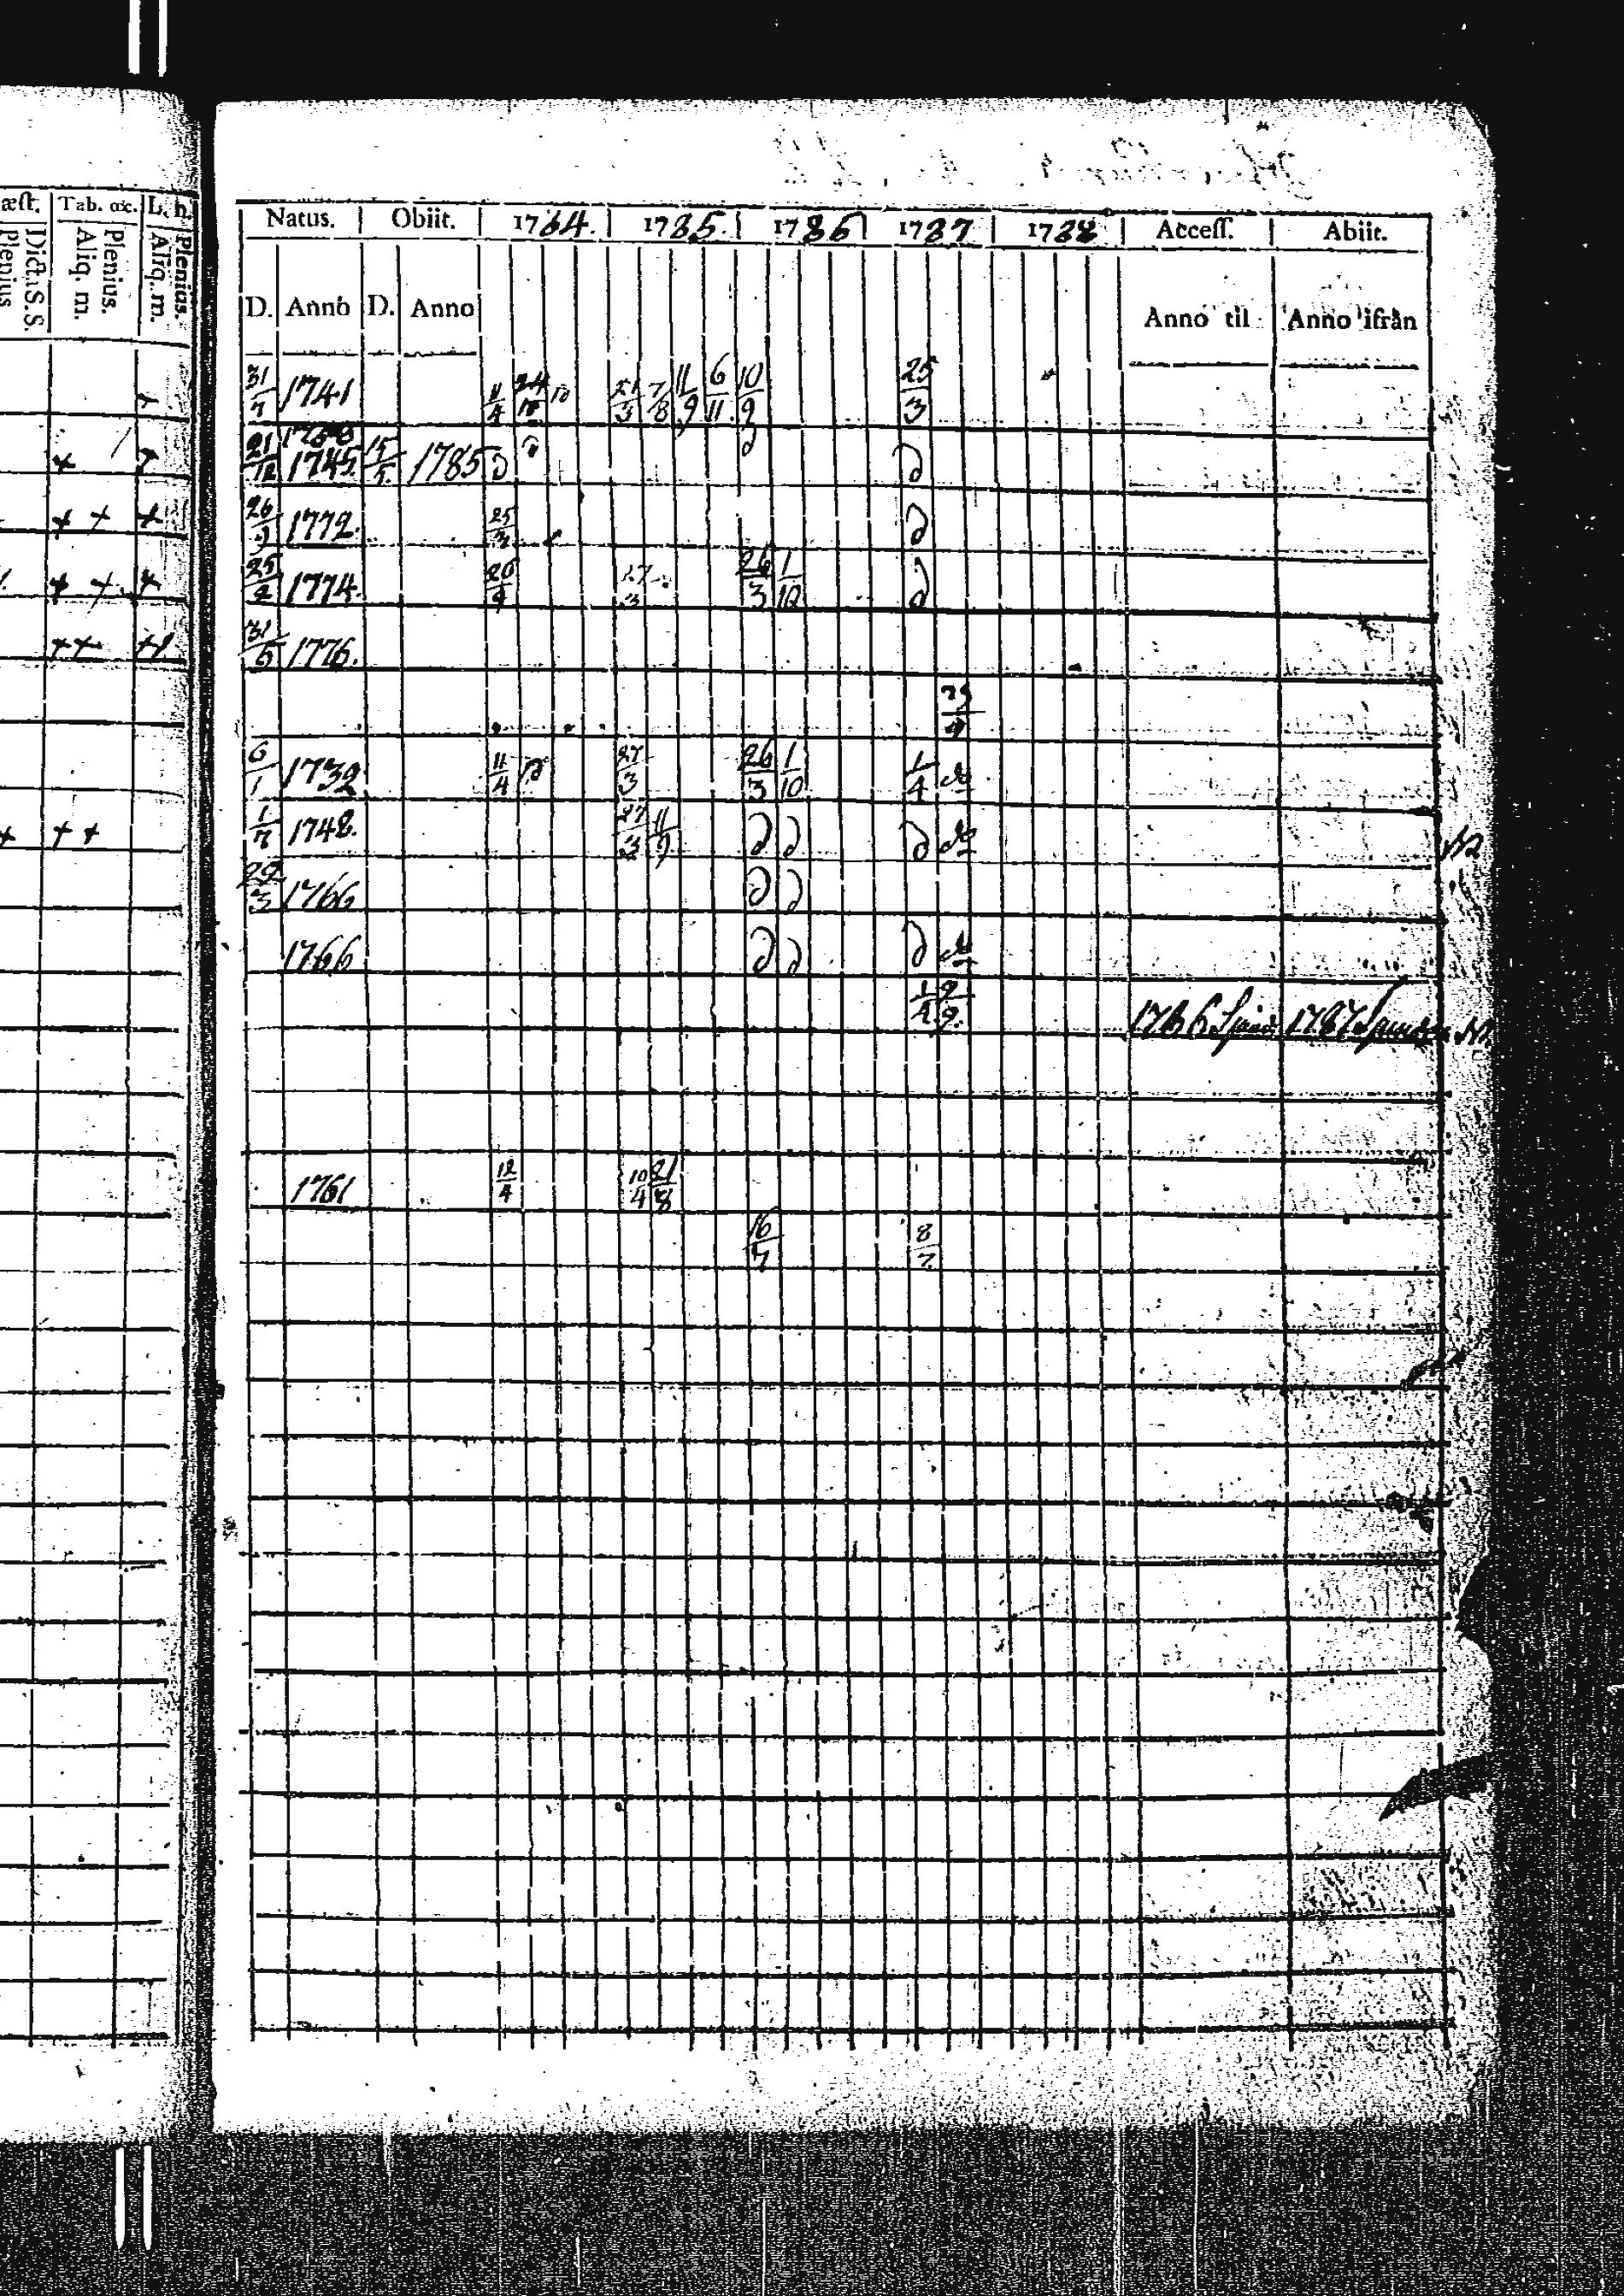 æſt. Tab. œc. L. h.
Dicta S. S. Plenius
Plenius. Aliq. m.
Plenius. Aliq. m.
Natus. Obiit. 1784. 1785. 1786 1787 1788 Acceſſ. Abiit.
D. Anno D. Anno Anno til Anno ifrån
31/7 1741 11/4 24/10 7/8 11/9 6/11 10/9 25/3
21/12 1745. 15/5 1785 D D D D
26/9 1772. 25/3 D
25/2 1774. 27/3 26/3 1/10 D
31/5 1776.
6/1 1732 11/4 D 27/3 26/3 1/10 1/4 do
1/7 1748. 27/3 11/9 D D D do
29/3 1766 D D
1766 D D D do
1/4 1786 1787
1761 12/4 10/4 21/8
16/7 8/7